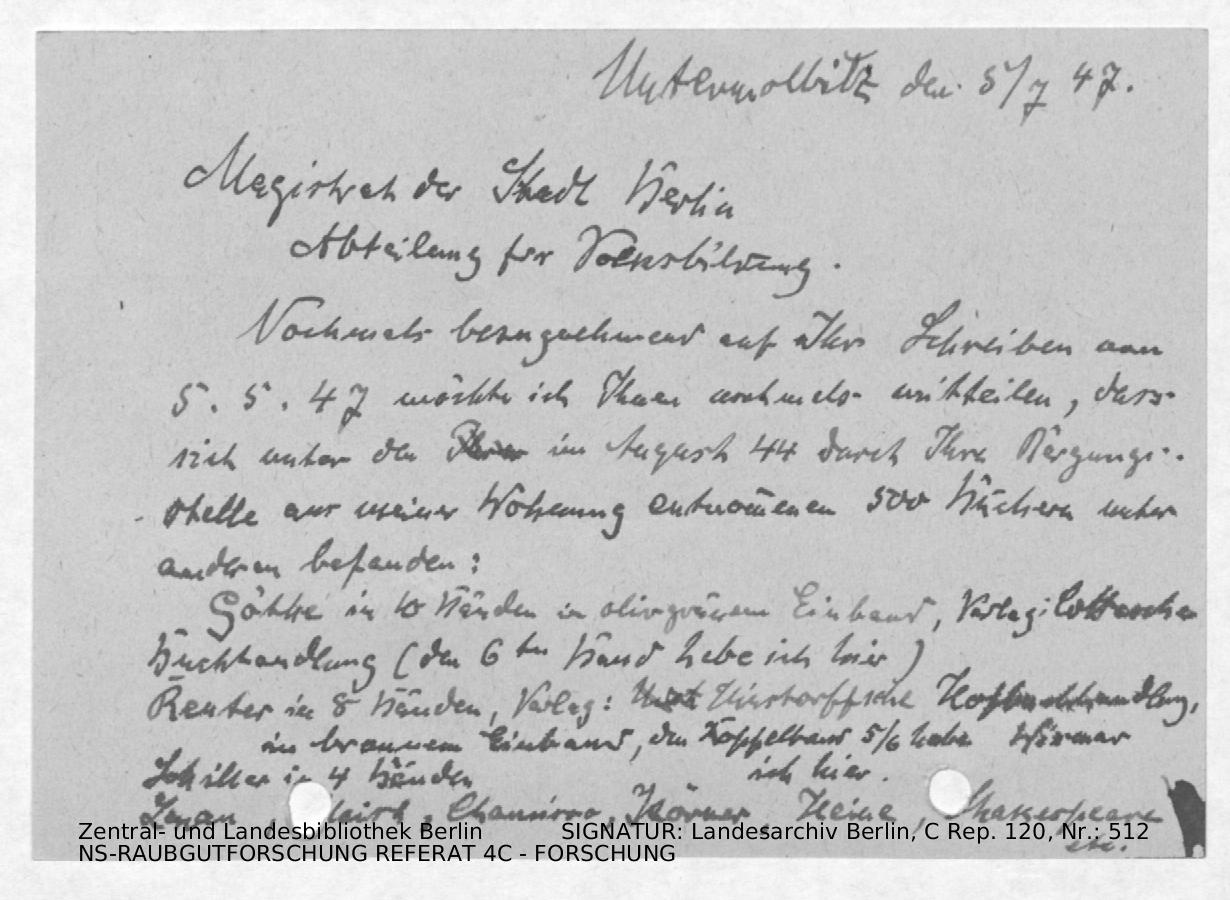 Untermolbitz den 5/7 47.
Magistrat der Stadt Berlin
Abteilung für Volksbildung.
Nochmals bezugnehmend auf Ihr Schreiben vom
5. 5. 47 möchte ich Ihnen nochmals mitteilen, dass
sich unter den im August 44 durch Ihre Bergungs-
stelle aus meiner Wohnung entnom̅enen 500 Büchern unter
anderen befanden:
Göthe in 10 Bänden in olivgrünem Einband, Verlag: Cottasche
Buchhandlung (den 6ten Band habe ich hier)
Reuter in 8 Bänden, Verlag: Hinstorffsche Hofbuchhandlung,
in braunem Einband, den Doppelband 5/6 habe Wismar
ich hier.
Schiller in 4 Bänden
Chamisso, Körner, Heine, Shakespeare
etc.
Zentral- und Landesbibliothek Berlin SIGNATUR: Landesarchiv Berlin, C Rep. 120, Nr.: 512
NS-RAUBGUTFORSCHUNG REFERAT 4C - FORSCHUNG